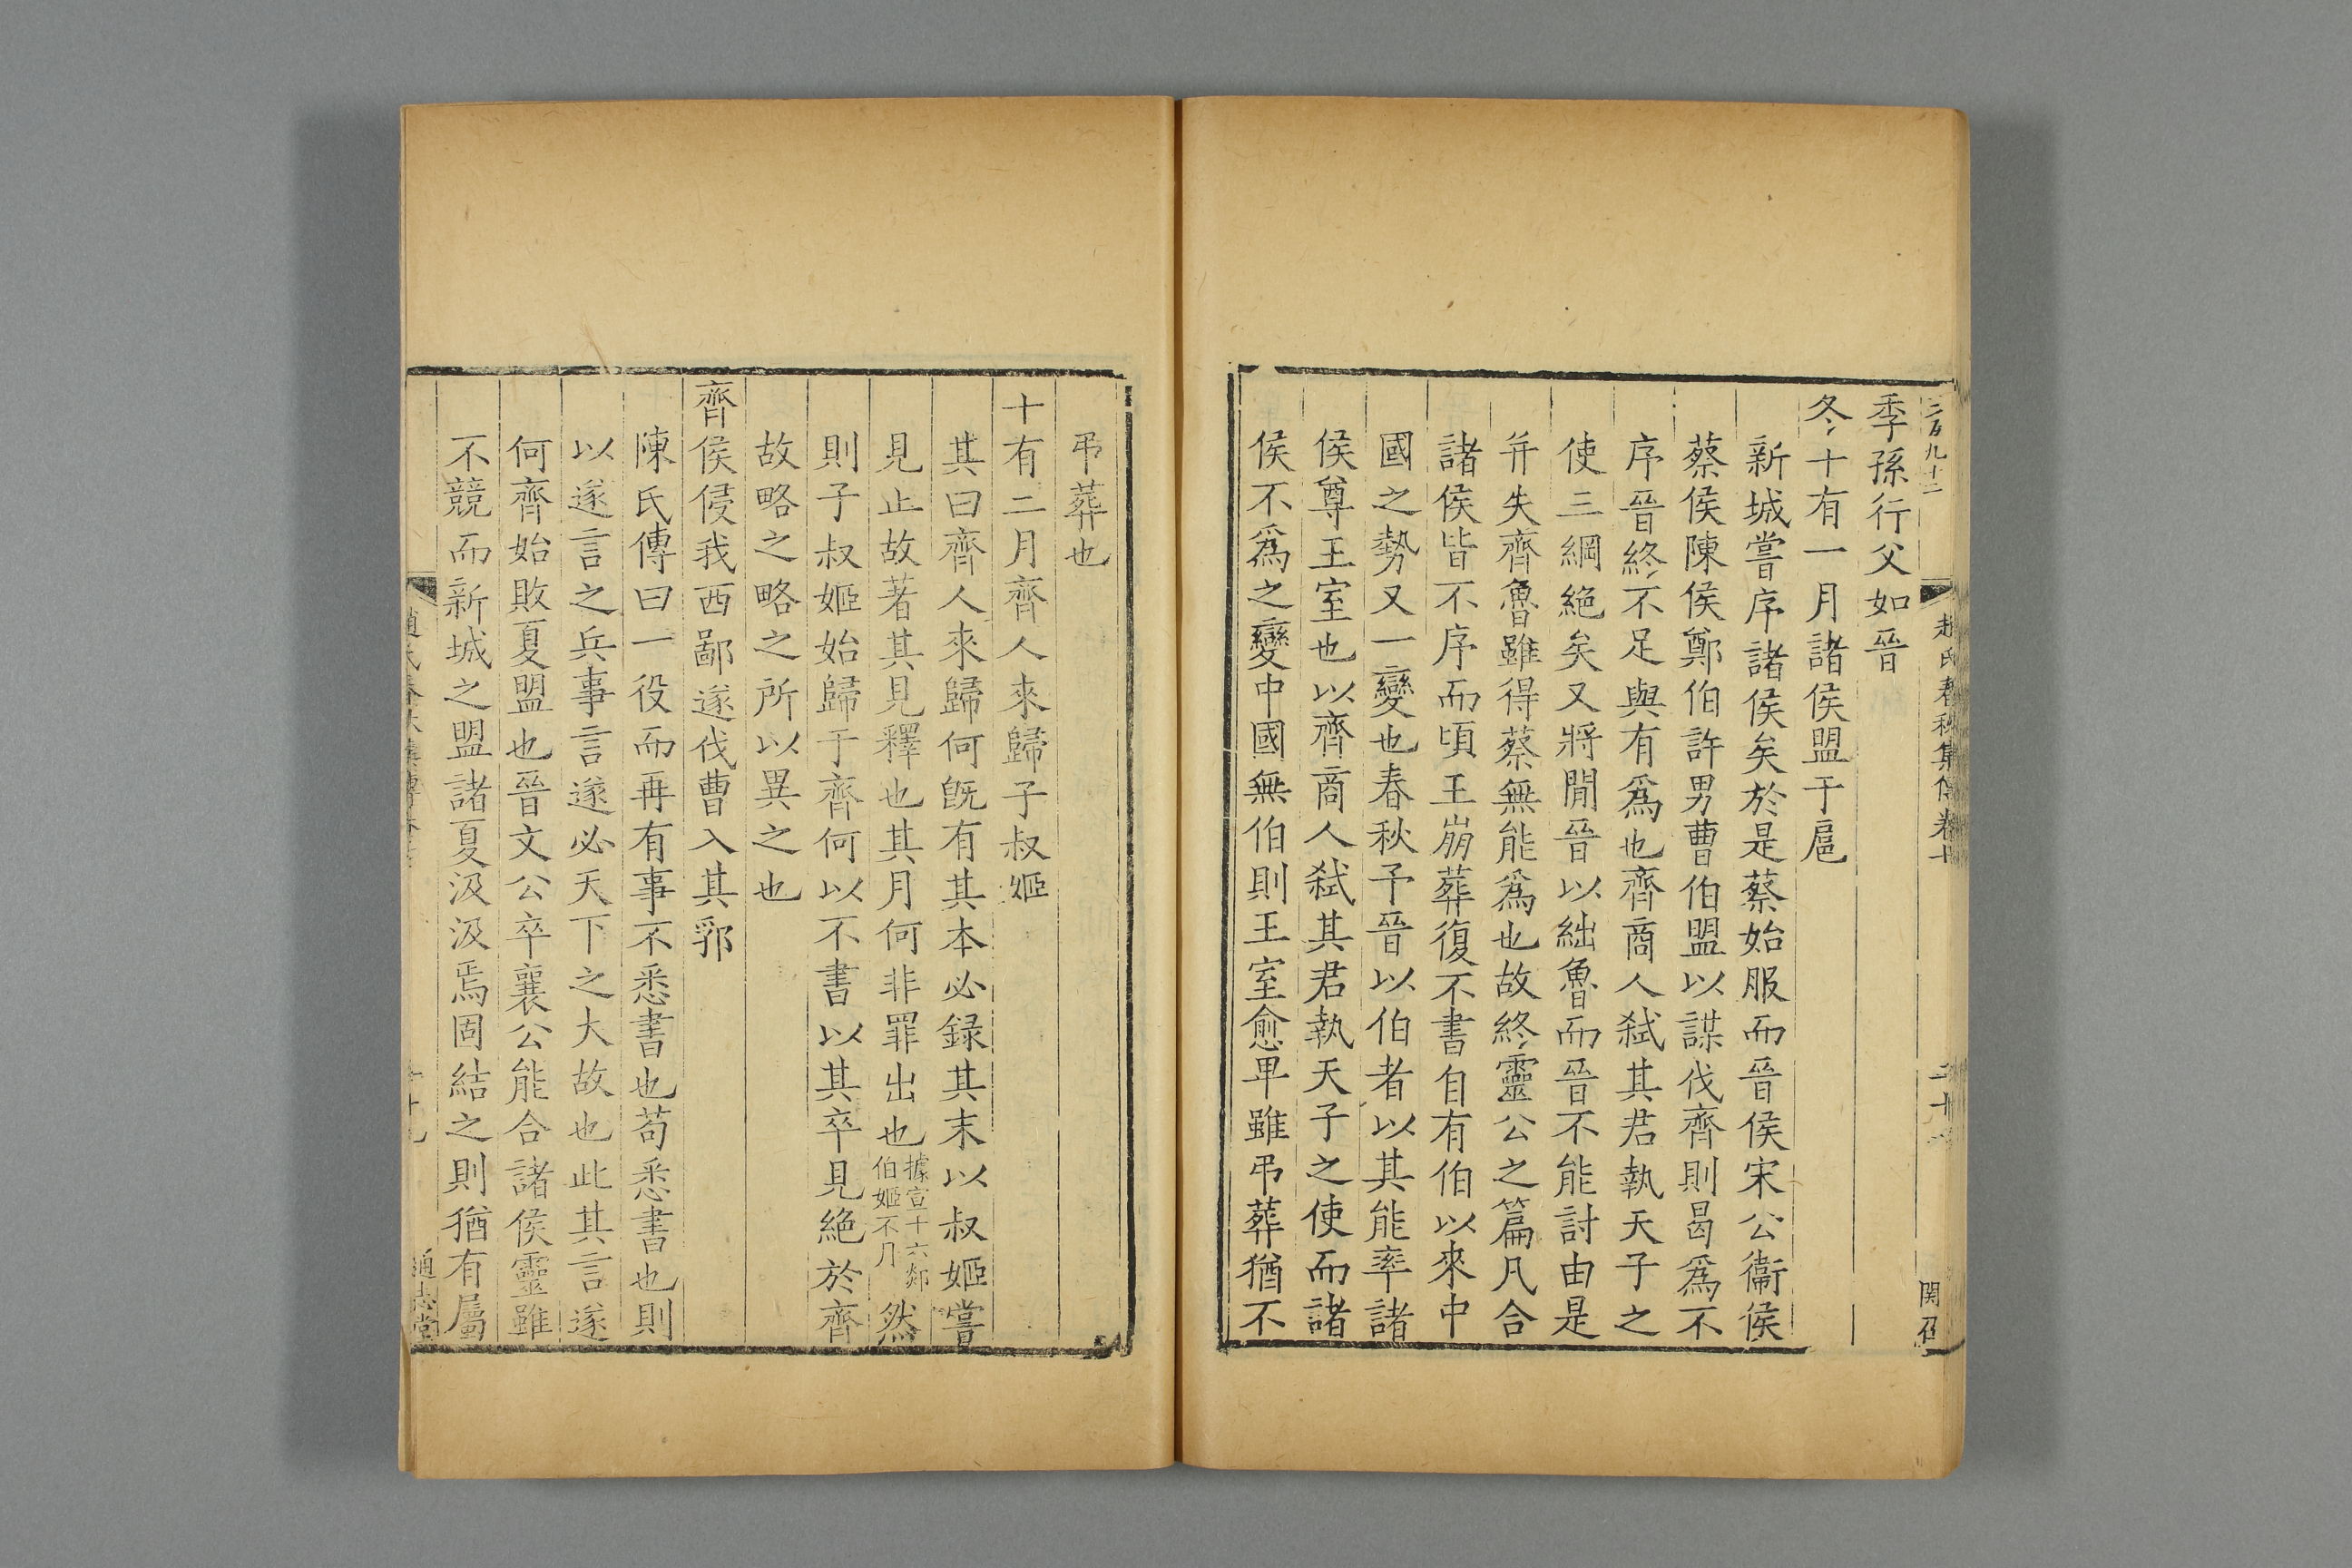 三百九十二
趙氏春秋集傳卷十
季孫行父如晉
冬十有一月諸侯盟于扈
新城嘗序諸侯矣於是蔡始服而晉侯宋公衞侯
蔡侯陳侯鄭伯許男曹伯盟以謀伐齊則曷爲不
序晉終不足與有爲也齊商人弑其君執天子之
使三綱絕矣又將閒晉以絀魯而晉不能討由是
并失齊魯雖得蔡無能爲也故終靈公之篇凡合
諸侯皆不序而頃王崩葬復不書自有伯以來中
國之勢又一變也春秋予晉以伯者以其能率諸
侯尊王室也以齊商人弑其君執天子之使而諸
侯不爲之變中國無伯則王室愈卑雖弔葬猶不
弔葬也
十有二月齊人來歸子叔姬
其曰齊人來歸何旣有其本必録其末以叔姬嘗
見止故著其見釋也其月何非罪出也據宣十六郯伯姬不月然
則子叔姬始歸于齊何以不書以其卒見絕於齊
故略之略之所以異之也
齊侯侵我西鄙遂伐曹入其郛
陳氏傳曰一役而再有事不悉書也苟悉書也則
以遂言之兵事言遂必天下之大故也此其言遂
何齊始敗夏盟也晉文公卒襄公能合諸侯靈雖
不競而新城之盟諸夏汲汲焉固結之則猶有屬
通志堂